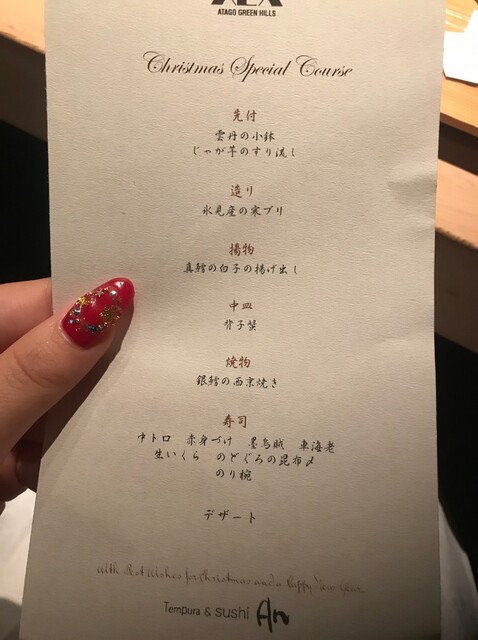 ATAGO GREEN HILLS
Christmas Special Course
先付
雲丹の小鉢
じゃが芋のすり流し
造り
氷見産の寒ブリ
揚物
真鱈の白子の揚げ出し
中皿
背子蟹
焼物
銀鱈の西京焼き
寿司
中トロ 赤身づけ 墨烏賊 車海老
生いくら のどぐろの昆布〆
のり椀
デザート
with Best wishes for Christmas and a happy New Year
Tempura & sushi An